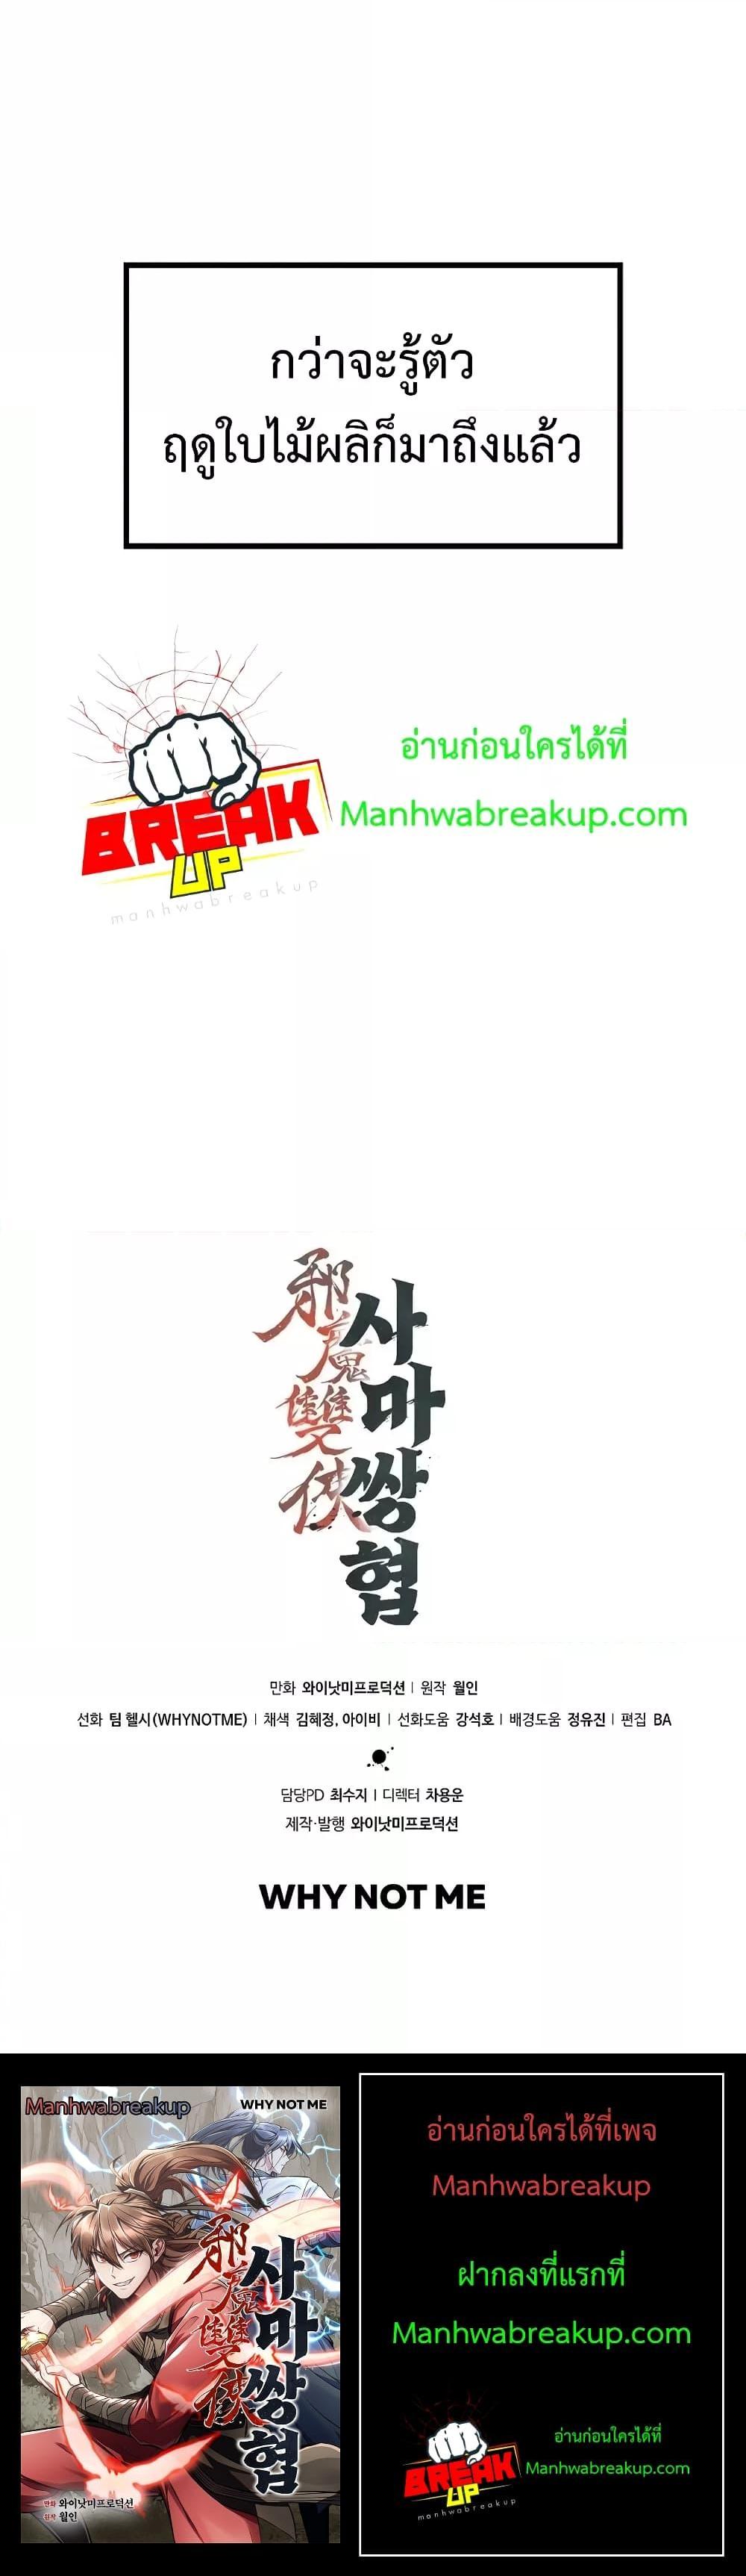 กว่าจะรู้ตัว
ฤดูใบไม้ผลิก็มาถึงแล้ว
BREAK
UP
manhwabreakup
อ่านก่อนใครได้ที่
Manhwabreakup.com
邪魔雙俠
사마쌍협
만화 와이낫미프로덕션 | 원작 월인
선화 팀 헬시(WHYNOTME) | 채색 김혜정, 아이비 | 선화도움 강석호 | 배경도움 정유진 | 편집 BA
담당PD 최수지 | 디렉터 차용운
제작·발행 와이낫미프로덕션
WHY NOT ME
Manhwabreakup
WHY NOT ME
邪魔雙俠
사마쌍협
만화 와이낫미프로덕션
원작 월인
อ่านก่อนใครได้ที่เพจ
Manhwabreakup
ฝากลงที่แรกที่
Manhwabreakup.com
BREAK
UP
manhwabreakup
อ่านก่อนใครได้ที่
Manhwabreakup.com